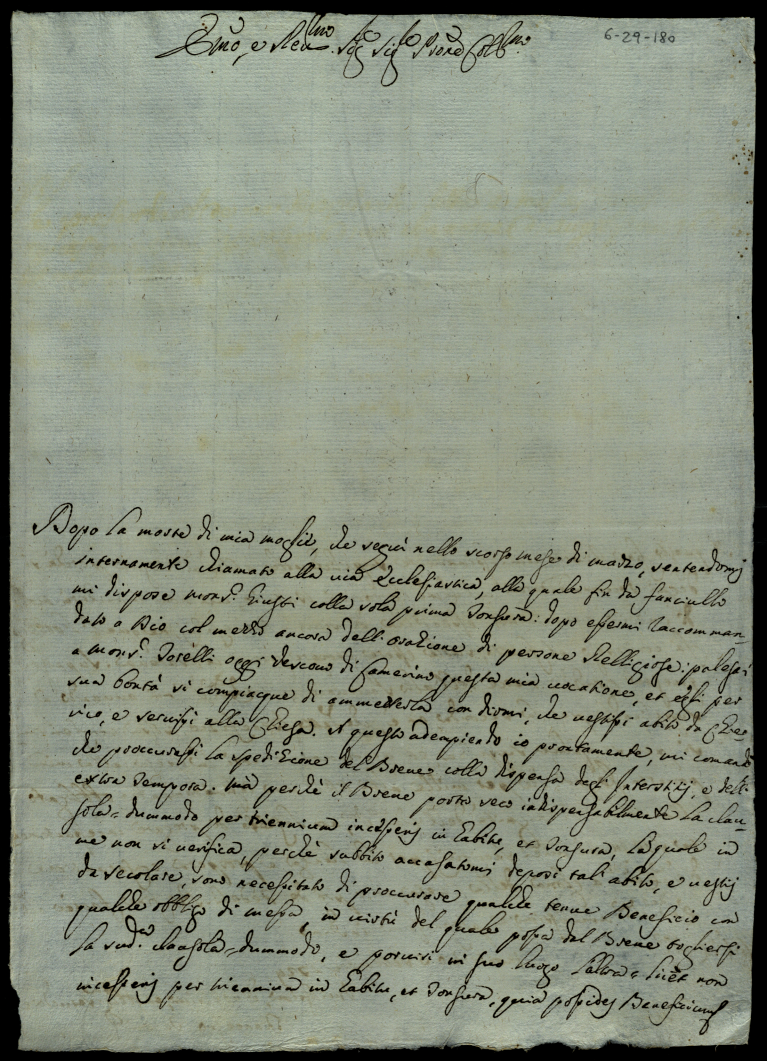 Emo, e Revmo. Sigre Sigre Prone Colmo
6-29-180
Dopo la morte di mia moglie, che seguì nello scorso mese di marzo, sentendomi
internamente chiamato alla via Ecclesiastica, alla quale fin da fanciullo
mi dispose monsr. Giusti colla sola prima Tonsura: dopo essermi raccomman-
dato a Dio col mezzo ancora dell'orazione di persone Religiose: palesai
a Monsr. Torelli oggi Vescovo di Camerino questa mia vocatione, et egli per
sua bontà si compiacque di ammetterla con dirmi, che vestissi abito da Chie-
rico, e servissi alla Chiesa. A questo adempiendo io prontamente, mi comandò
che proccurassi la spedizione del Breve colla dispensa degl'Interstitij, e dell'
extra tempora. Mà perchè il Breve porta seco indispensabilmente la clau-
sola = dummodo per triennium incesseris in habitu, et tonsura, la quale in
me non si verifica, perchè subbito accasatomi deposi tal'abito, e vestij
da secolare, sono necessitato di proccurare qualche tenue Beneficio con
qualche obbligo di messa, in virtù del quale possa dal Breve togliersi
la sudª. clausola = dummodo, e porvisi in suo luogo l'altra = licèt non
incesseris per triennium in habitu, et tonsura, quia possides Beneficium